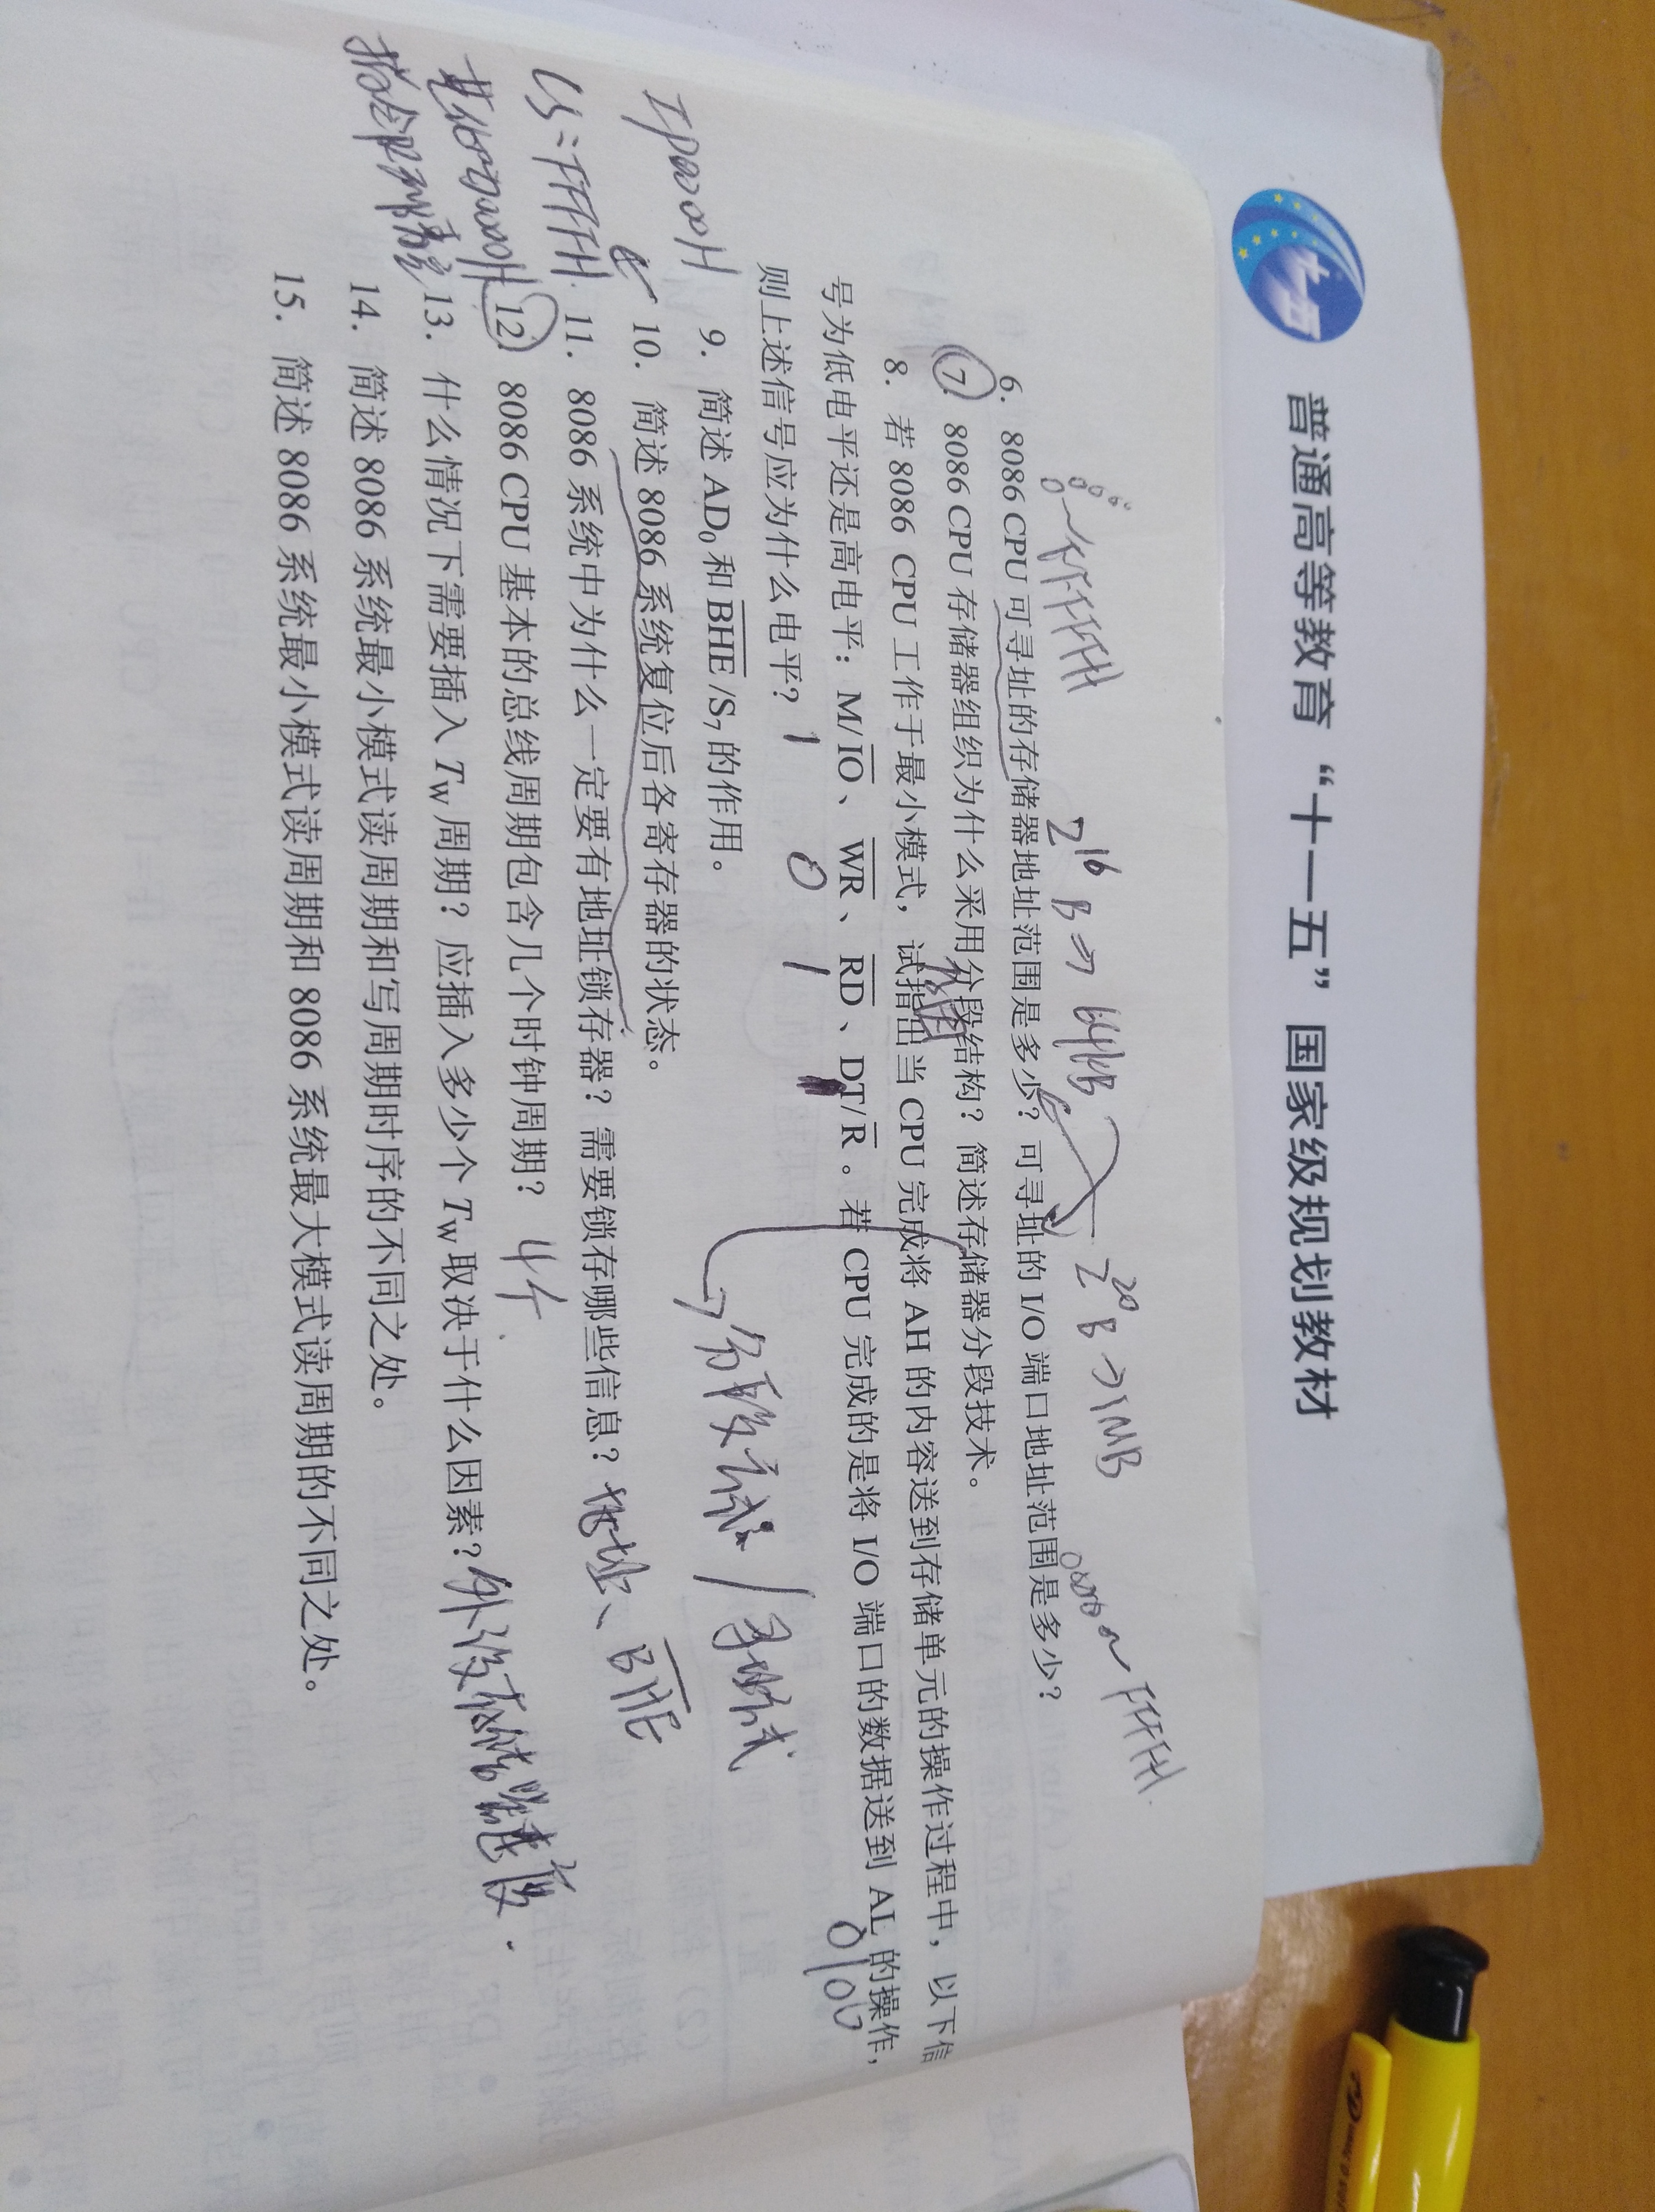 十一五
普通高等教育“十一五”国家级规划教材
00000~FFFFFH
2¹⁶ B ⇒ 64KB
2²⁰ B → 1MB
0000~FFFFH.
6. 8086 CPU 可寻址的存储器地址范围是多少？可寻址的 I/O 端口地址范围是多少？
7. 8086 CPU 存储器组织为什么采用分段结构？简述存储器分段技术。
8. 若 8086 CPU 工作于最小模式，试指出当 CPU 完成将 AH 的内容送到存储单元的操作过程中，以下信
号为低电平还是高电平：M/I̅O̅、W̅R̅、R̅D̅、DT/R̅。若 CPU 完成的是将 I/O 端口的数据送到 AL 的操作，
1 0 1 1
0100
则上述信号应为什么电平？
分段方式 / 寻址方式
9. 简述 AD₀ 和 B̅H̅E̅/S₇ 的作用。
IP0000H
10. 简述 8086 系统复位后各寄存器的状态。
CS=FFFFH.
11. 8086 系统中为什么一定要有地址锁存器？需要锁存哪些信息？ 地址、B̅H̅E̅
其他0000H
12. 8086 CPU 基本的总线周期包含几个时钟周期？ 4个.
指令队列清空
13. 什么情况下需要插入 T_W 周期？应插入多少个 T_W 取决于什么因素？ 外设存储器速度.
14. 简述 8086 系统最小模式读周期和写周期时序的不同之处。
15. 简述 8086 系统最小模式读周期和 8086 系统最大模式读周期的不同之处。